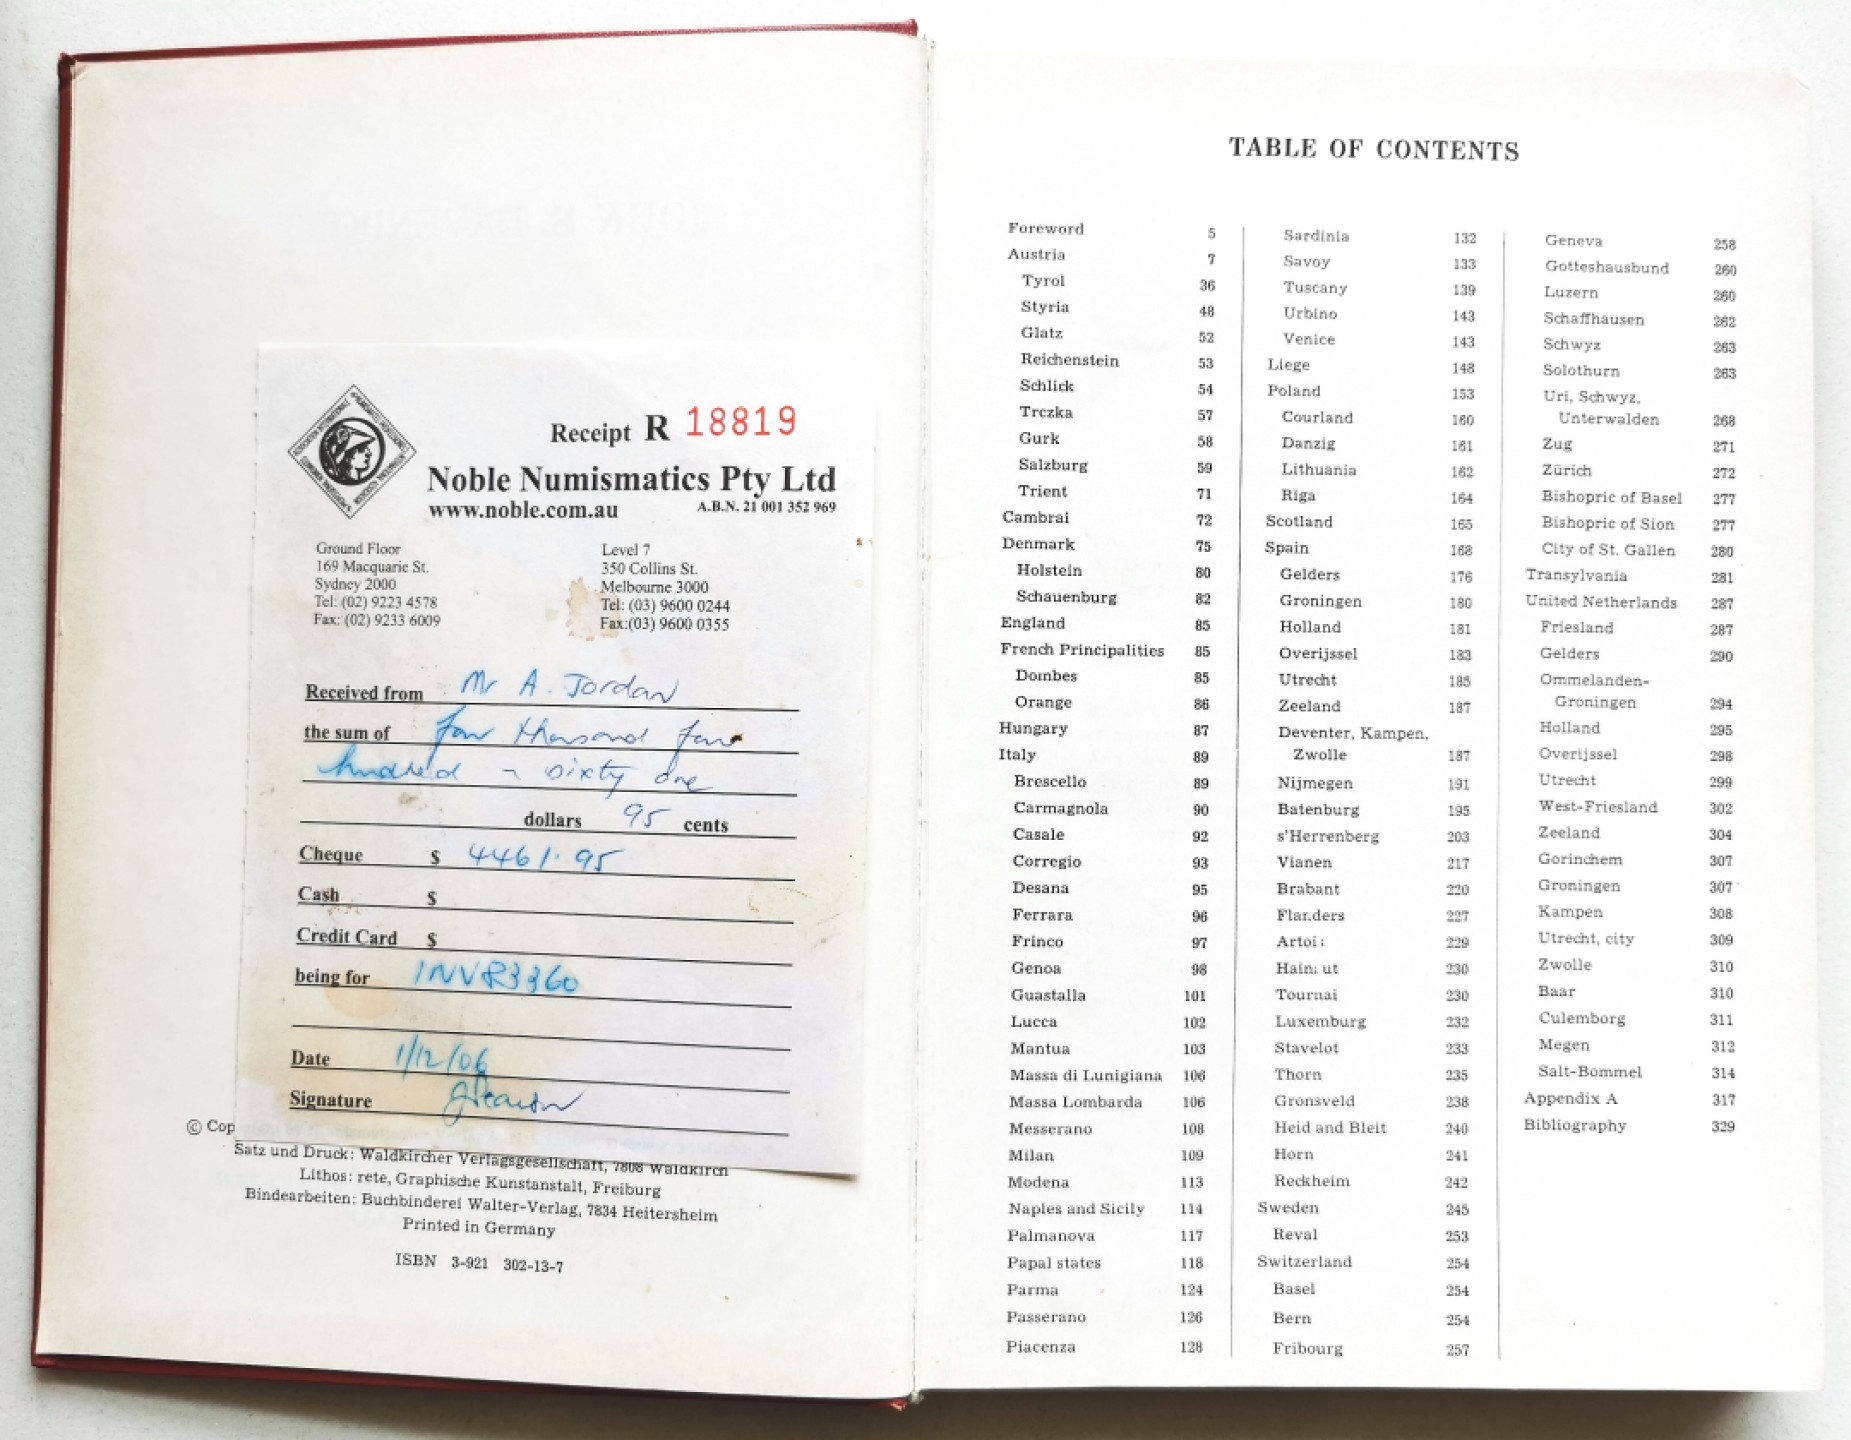 Receipt R 18819
Noble Numismatics Pty Ltd
www.noble.com.au A.B.N. 21 001 352 969
Ground Floor
169 Macquarie St.
Sydney 2000
Tel: (02) 9223 4578
Fax: (02) 9233 6009
Level 7
350 Collins St.
Melbourne 3000
Tel: (03) 9600 0244
Fax:(03) 9600 0355
Received from Mr A. Jordan
the sum of four thousand four
hundred - sixty one
dollars 95 cents
Cheque $ 4461.95
Cash $
Credit Card $
being for INV83360
Date 1/12/06
Signature
© Cop
Satz und Druck: Waldkircher Verlagsgesellschaft, 7808 Waldkirch
Lithos: rete, Graphische Kunstanstalt, Freiburg
Bindearbeiten: Buchbinderei Walter-Verlag, 7834 Heitersheim
Printed in Germany
ISBN 3-921 302-13-7
TABLE OF CONTENTS
Foreword 5
Austria 7
Tyrol 36
Styria 48
Glatz 52
Reichenstein 53
Schlick 54
Trczka 57
Gurk 58
Salzburg 59
Trient 71
Cambrai 72
Denmark 75
Holstein 80
Schauenburg 82
England 85
French Principalities 85
Dombes 85
Orange 86
Hungary 87
Italy 89
Brescello 89
Carmagnola 90
Casale 92
Corregio 93
Desana 95
Ferrara 96
Frinco 97
Genoa 98
Guastalla 101
Lucca 102
Mantua 103
Massa di Lunigiana 106
Massa Lombarda 106
Messerano 108
Milan 109
Modena 113
Naples and Sicily 114
Palmanova 117
Papal states 118
Parma 124
Passerano 126
Piacenza 128
Sardinia 132
Savoy 133
Tuscany 139
Urbino 143
Venice 143
Liege 148
Poland 153
Courland 160
Danzig 161
Lithuania 162
Riga 164
Scotland 165
Spain 168
Gelders 176
Groningen 180
Holland 181
Overijssel 183
Utrecht 185
Zeeland 187
Deventer, Kampen,
Zwolle 187
Nijmegen 191
Batenburg 195
s'Herrenberg 203
Vianen 217
Brabant 220
Flanders 227
Artois 229
Hainaut 230
Tournai 230
Luxemburg 232
Stavelot 233
Thorn 235
Gronsveld 238
Heid and Bleit 240
Horn 241
Reckheim 242
Sweden 245
Reval 253
Switzerland 254
Basel 254
Bern 254
Fribourg 257
Geneva 258
Gotteshausbund 260
Luzern 260
Schaffhausen 262
Schwyz 263
Solothurn 263
Uri, Schwyz,
Unterwalden 268
Zug 271
Zürich 272
Bishopric of Basel 277
Bishopric of Sion 277
City of St. Gallen 280
Transylvania 281
United Netherlands 287
Friesland 287
Gelders 290
Ommelanden-
Groningen 294
Holland 295
Overijssel 298
Utrecht 299
West-Friesland 302
Zeeland 304
Gorinchem 307
Groningen 307
Kampen 308
Utrecht, city 309
Zwolle 310
Baar 310
Culemborg 311
Megen 312
Salt-Bommel 314
Appendix A 317
Bibliography 329